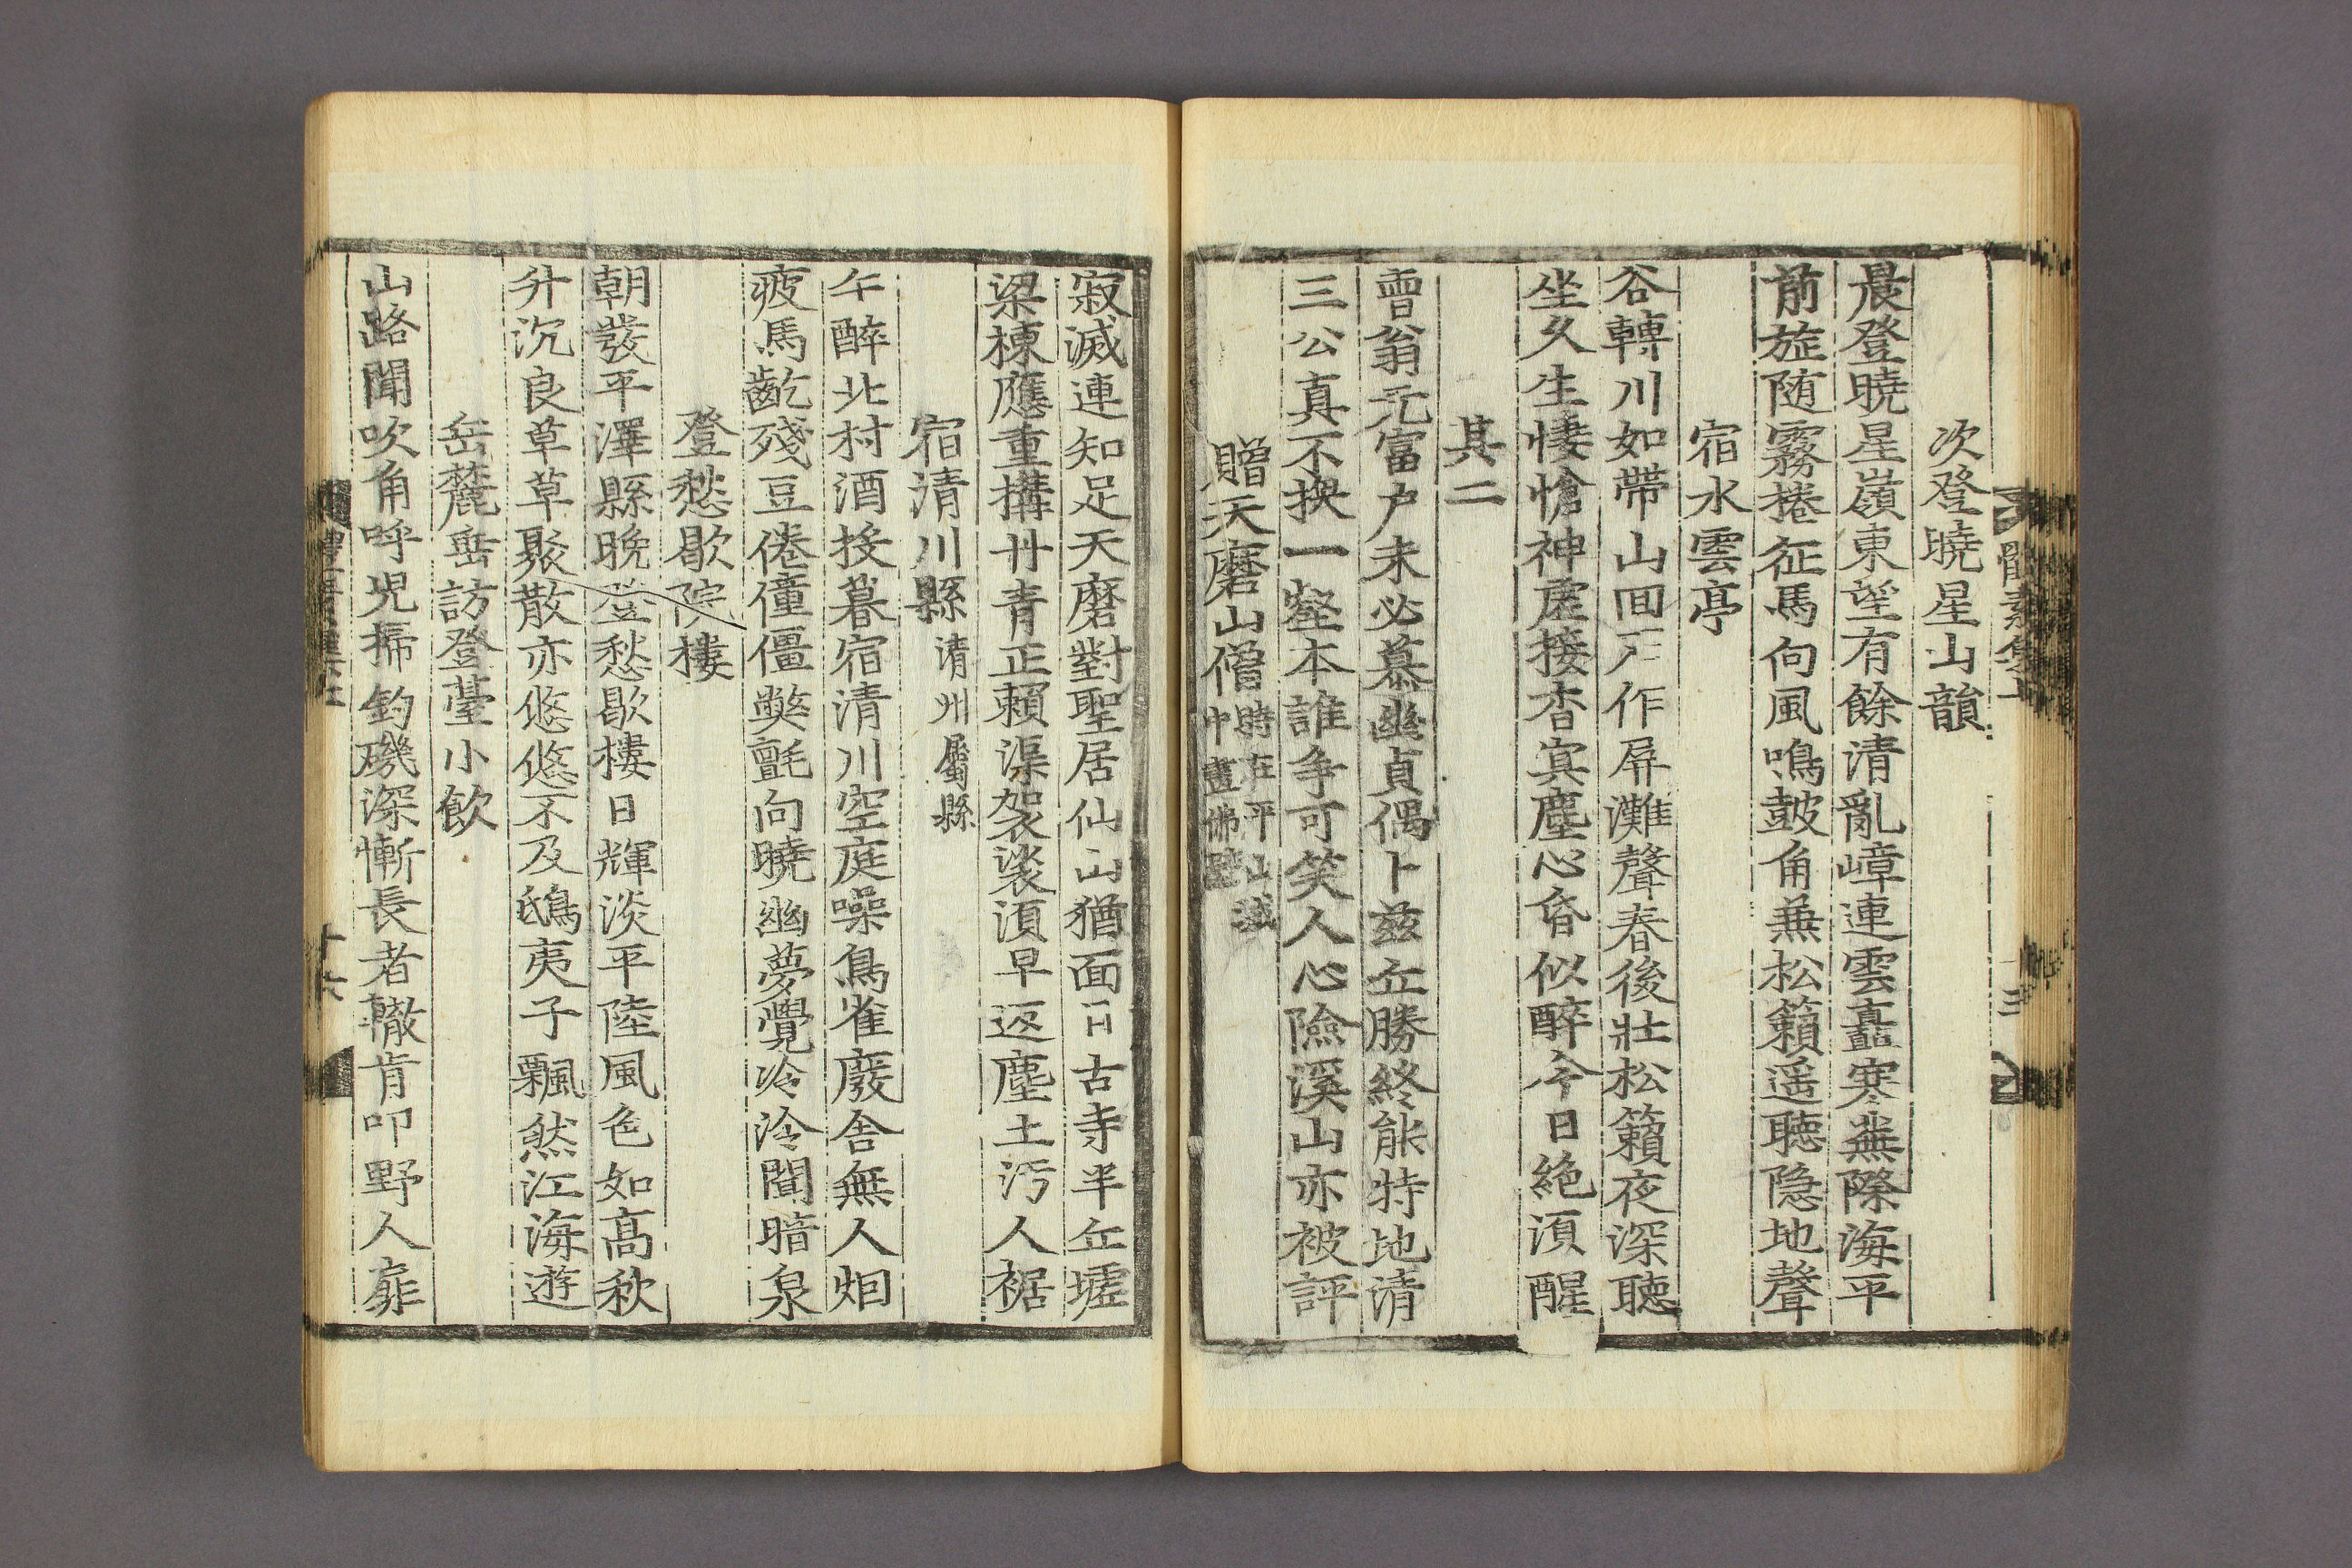 次登曉星山韻
晨登曉星嶺東望有餘清亂嶂連雲矗寒蕪際海平
前旌随霧捲征馬向風鳴鼓角兼松籟遥聴隐地聲
宿水雲亭
谷轉川如帶山回戶作屛灘聲春後壯松籟夜深聴
坐久生悽愴神虗接杳㝠塵心昏似醉今日絶湏醒
其二
曺翁元富户未必慕幽貞偶卜兹丘勝終能特地清
三公真不換一壑本誰争可笑人心險溪山亦被評
贈天磨山僧時在平山滅
中畫佛
寂滅連知足天磨對聖居仙山猶面目古寺半丘墟
梁棟應重搆丹青正頼渠袈裟湏早返塵土汚人裾
宿清川縣清州屬縣
午醉北村酒投暮宿清川空庭噪鳥雀廢舎無人烟
疲馬齕殘豆倦僮僵獘氈向曉幽夢覺泠泠聞暗泉
登愁歇院樓
朝發平澤縣晚登愁歇樓日輝淡平陸風色如髙秋
升沉良草草聚散亦悠悠不及鴟夷子飄然江海遊
岳麓岳訪登䑓小飮
山路聞吹角呼児掃釣磯深慚長者轍肯叩野人扉
十六